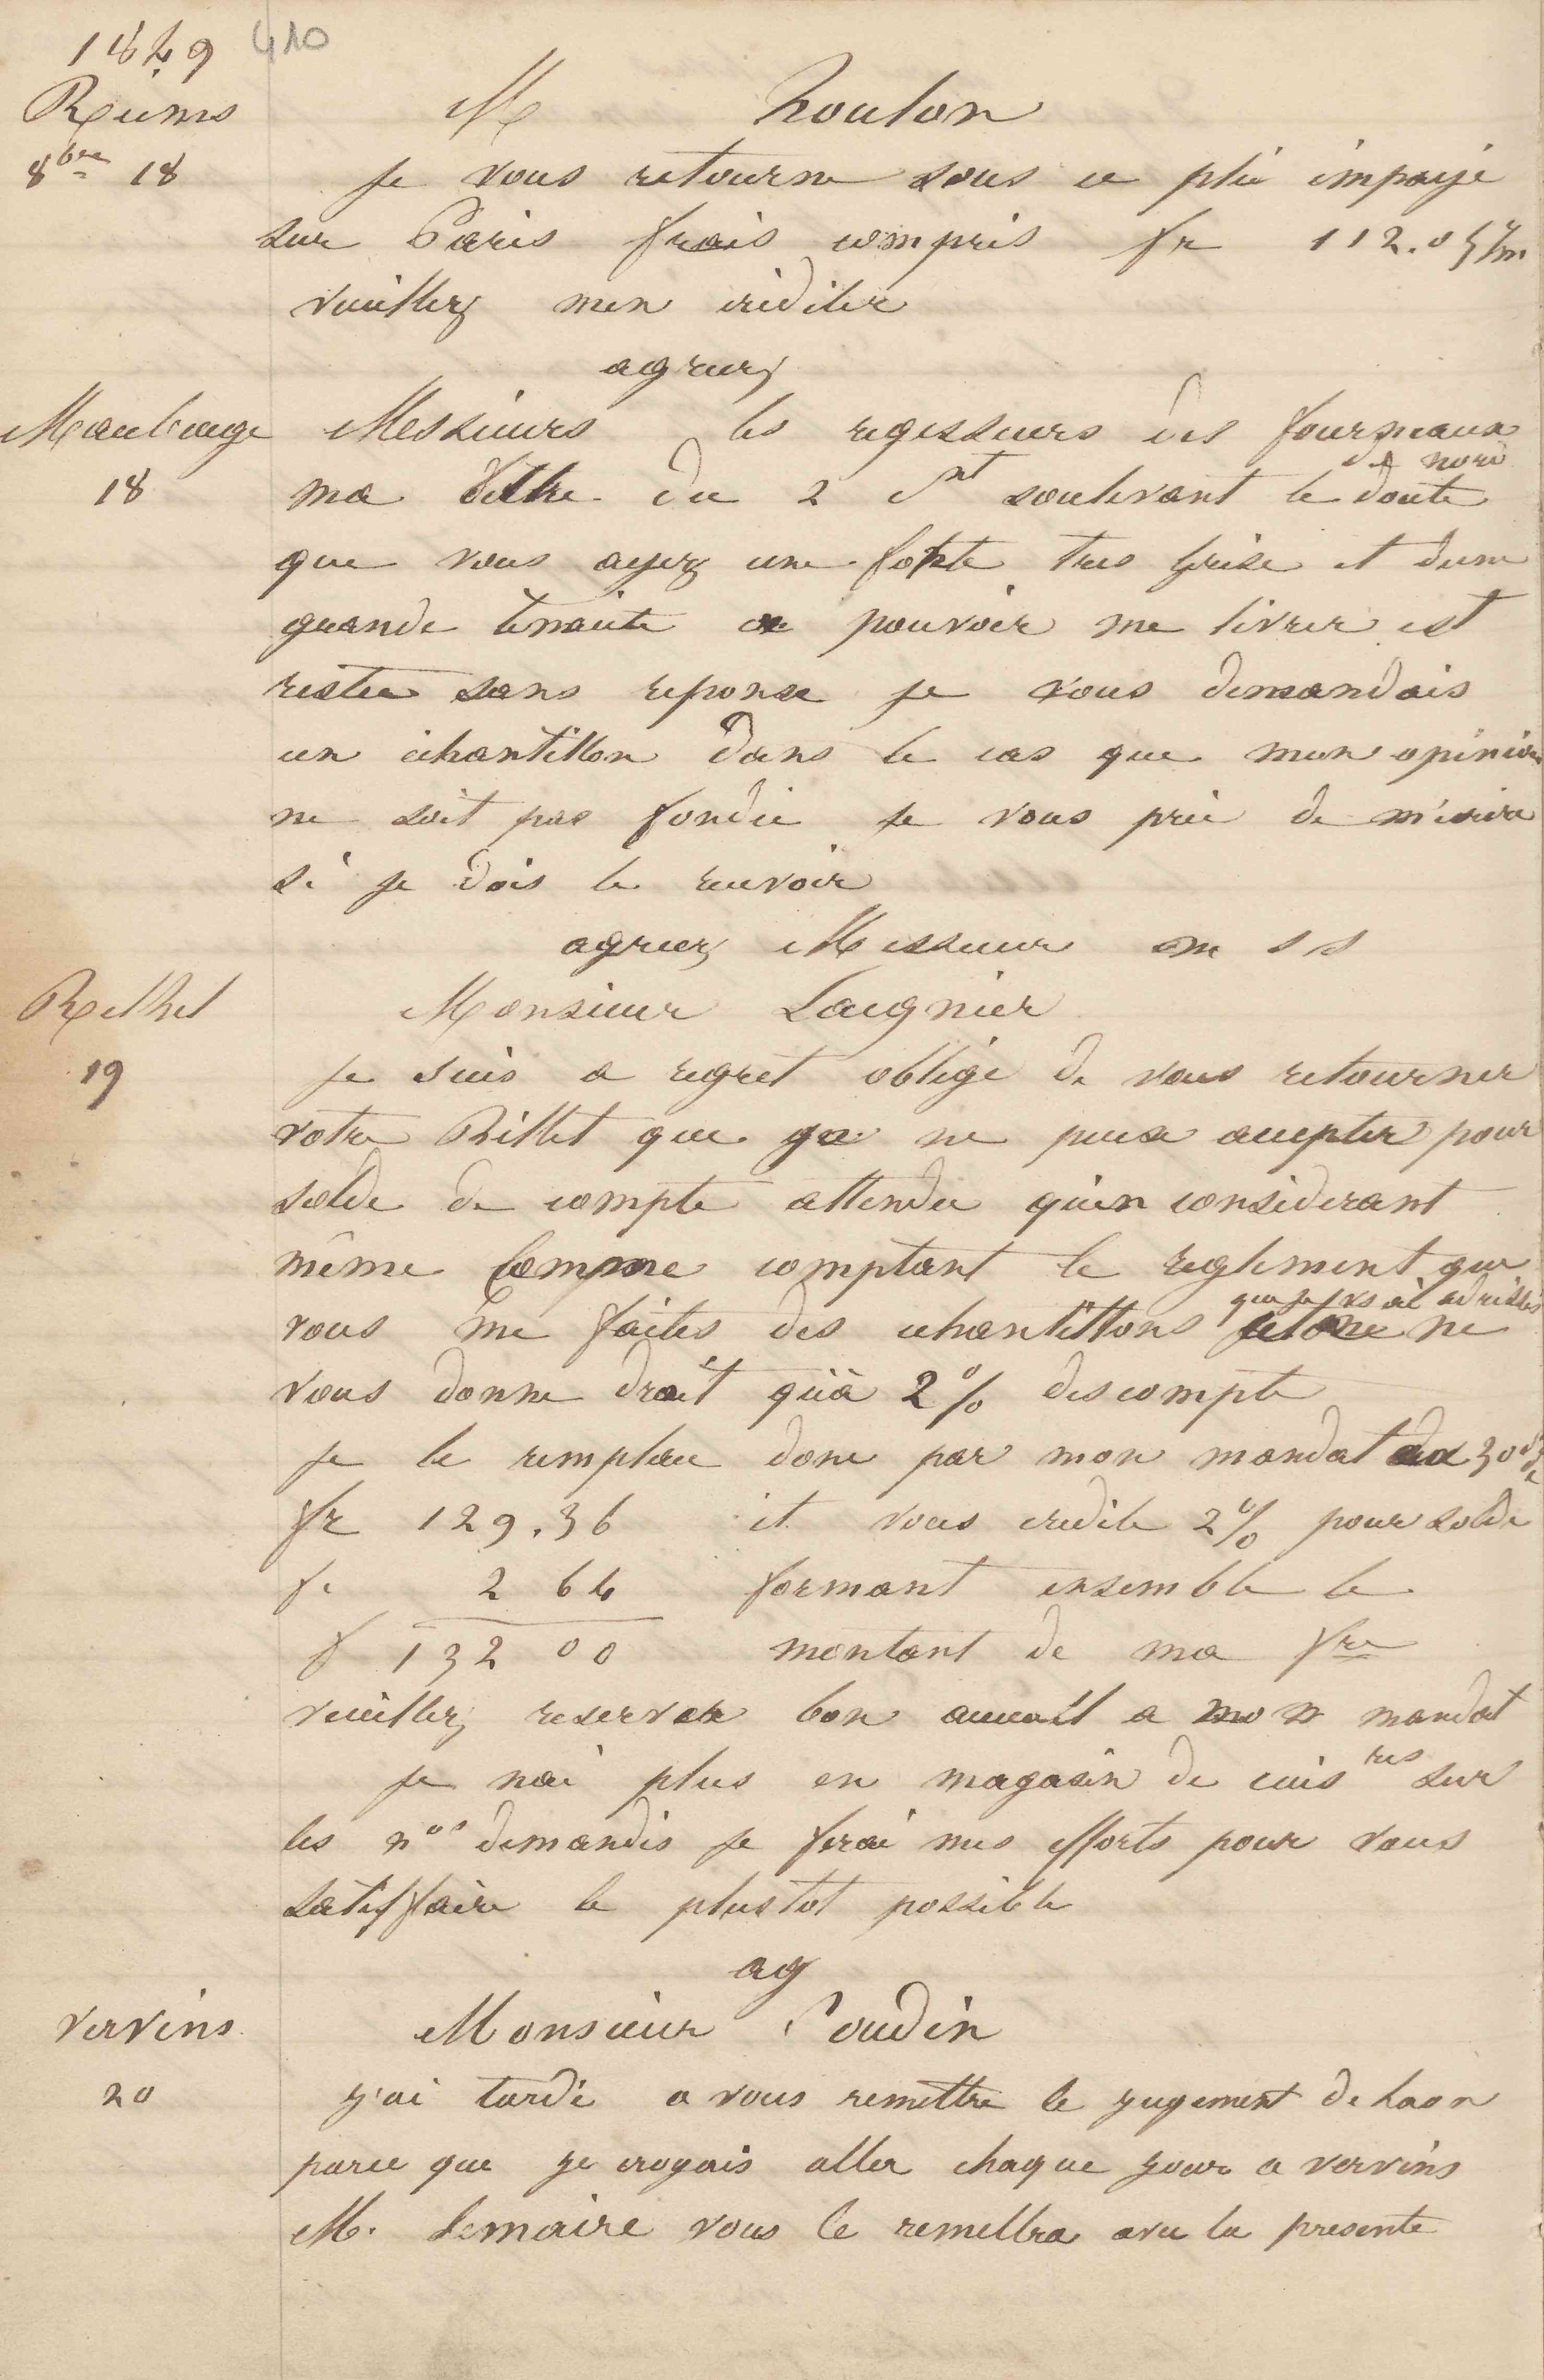 1849 410
Reims
8bre 18
M Houlon
je vous retourne sous ce plie impayé
sur Paris frais compris fr 112.05
veuillez men créditer
agreez
Maubeuge
18
Messieurs les regisseurs des fourneaux
du nord
ma lettre du 2 ct soulevant le doute
que vous ayez une fonte tres grise et dune
grande tenacité a pouvoir me livrer est
restée sans reponse je vous demandais
un échantillon dans le cas que mon opinion
ne soit pas fondée je vous prie de m'écrire
si je dois le recevoir
agreez Messieur m s s
Rethel
19
Monsieur Laignier
je suis a regret obligé de vous retourner
votre Billet que je ne peux accepter pour
solde de compte attendu qu'en considerant
même comme comptant le reglement que
que je vs ai adressés
vous me faites des echantillons ne
vous donne droit qu'à 2% descompte
je le remplace donc par mon mandat au 30 Xbre
fr 129.36 et vous credite 2% pour solde
fr 2 64 formant ensemble le
f 132 00 montant de ma fre
veuillez reserver bon accueil a mon mandat
je nai plus en magasin de cuisres sur
les nos demandés je ferai mes efforts pour vous
satisffaire le plustot possible
ag
Vervins
20
Monsieur Soudin
j'ai tardé a vous remettre le jugement de Laon
parce que je croyais aller chaque jour a vervins
M. Lemaire vous le remettra avec la presente